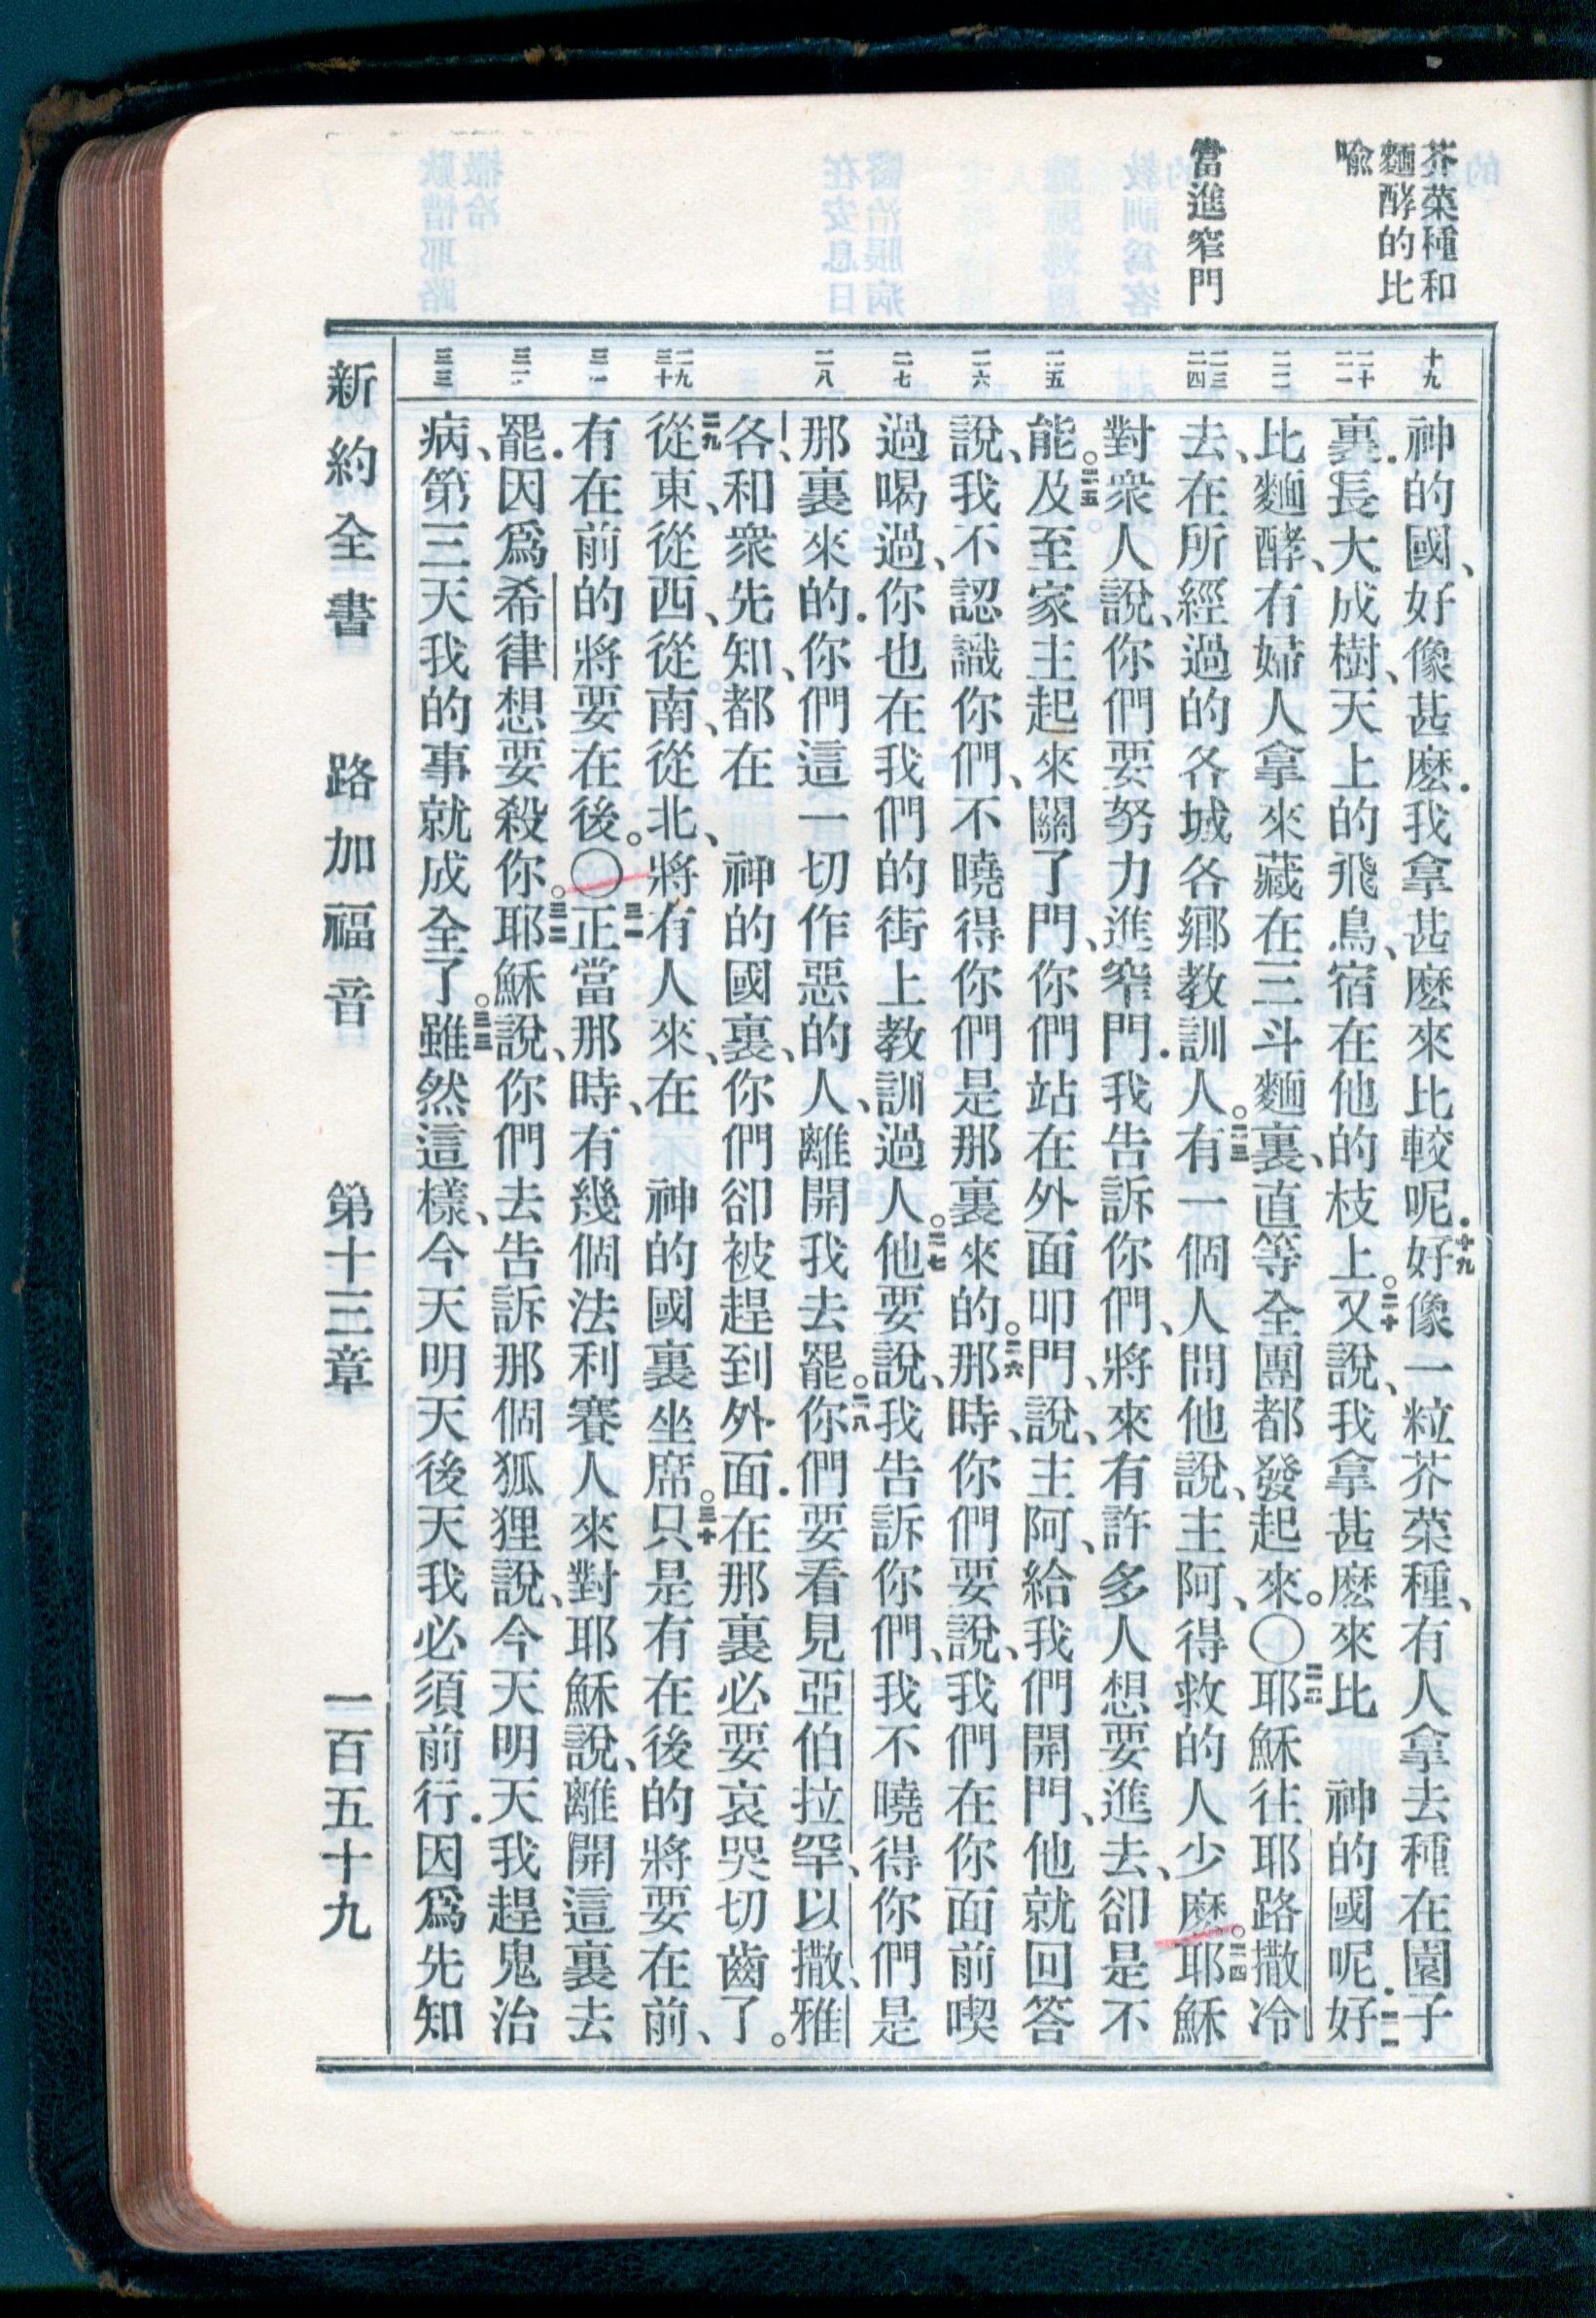 芥菜種和
麵酵的比
喩
當進窄門
十九
二十
二一
二二
二三
二四
二五
二六
二七
二八
二九
三十
三一
三二
三三
神的國、好像甚麽.我拿甚麽來比較呢.十九好像一粒芥菜種、有人拿去種在園子
裏.長大成樹、天上的飛鳥、宿在他的枝上。二十又說、我拿甚麽來比 神的國呢.二一好
比麵酵、有婦人拿來藏在三斗麵裏、直等全團都發起來。〇二二耶穌往耶路撒冷
去、在所經過的各城各鄉教訓人。二三有一個人問他說、主阿、得救的人少麽。二四耶穌
對衆人說、你們要努力進窄門.我告訴你們、將來有許多人想要進去、卻是不
能。二五及至家主起來關了門、你們站在外面叩門、說、主阿、給我們開門、他就回答
說、我不認識你們、不曉得你們是那裏來的。二六那時、你們要說、我們在你面前喫
過喝過、你也在我們的街上教訓過人。二七他要說、我告訴你們、我不曉得你們是
那裏來的.你們這一切作惡的人、離開我去罷。二八你們要看見亞伯拉罕、以撒、雅
各、和衆先知、都在 神的國裏、你們卻被趕到外面.在那裏必要哀哭切齒了。
二九從東、從西、從南、從北、將有人來、在 神的國裏坐席。三十只是有在後的將要在前、
有在前的將要在後。〇三一正當那時、有幾個法利賽人來對耶穌說、離開這裏去
罷.因爲希律想要殺你。三二耶穌說、你們去告訴那個狐狸說、今天明天我趕鬼治
病、第三天我的事就成全了。三三雖然這樣、今天明天後天我必須前行.因爲先知
新約全書 路加福音 第十三章 一百五十九